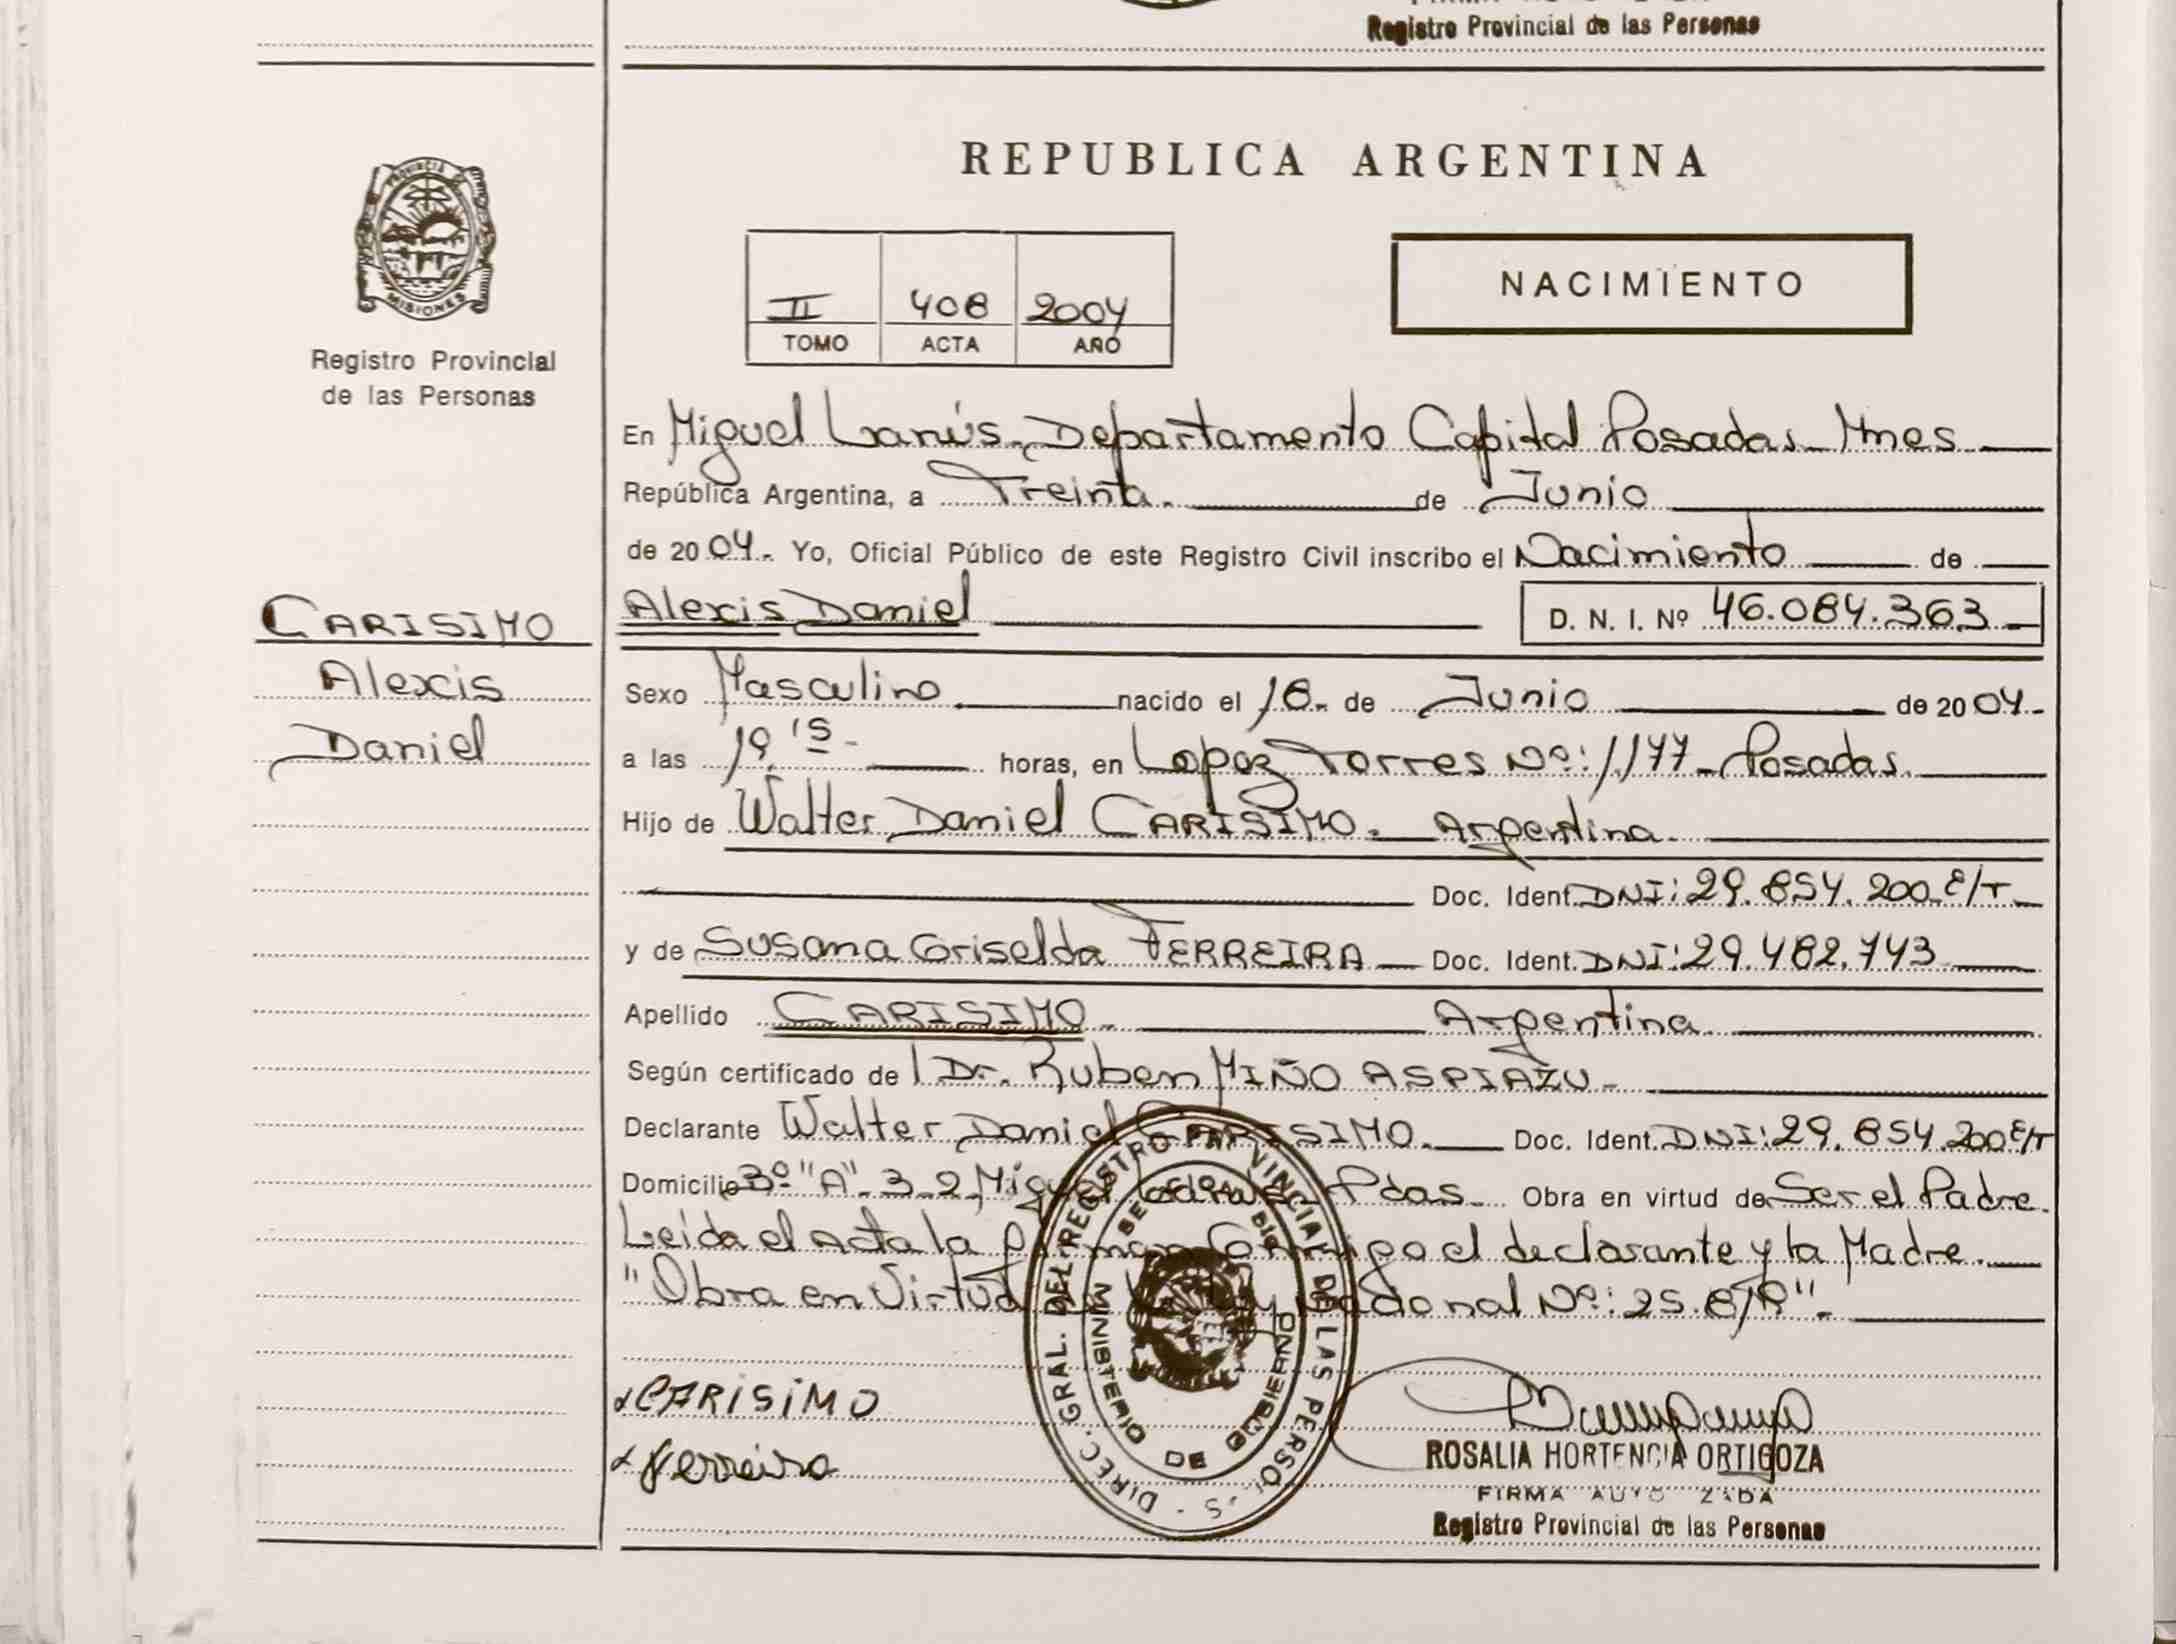 Registro Provincial de las Personas
REPUBLICA ARGENTINA
PROVINCIA DE
MISIONES
Registro Provincial
de las Personas
II 408 2004
TOMO ACTA AÑO
NACIMIENTO
En Miguel Lanús, Departamento Capital Posadas Mnes
República Argentina, a Treinta. de Junio
de 2004. Yo, Oficial Público de este Registro Civil inscribo el Nacimiento de
CARISIMO
Alexis
Daniel
Alexis Daniel D. N. I. Nº 46.084.363
Sexo Masculino nacido el 18. de Junio de 2004.
a las 19.15 horas, en Lopez Torres Nº: 1.177 Posadas.
Hijo de Walter Daniel CARISIMO. Argentina.
Doc. Ident. DNI: 29.854.200 E/T
y de Susana Griselda FERREIRA Doc. Ident. DNI: 29.482.743
Apellido CARISIMO. Argentina
Según certificado de Dr. Ruben MIÑO ASPIAZU
Declarante Walter Daniel CARISIMO. Doc. Ident. DNI: 29.854.200 E/T
Domicilio 3º "A" 3 2 Miguel Lanus Pdas. Obra en virtud de Ser el Padre.
Leída el Acta la firman Conmigo el declarante y la Madre.
"Obra en Virtud Ley Nacional Nº: 25.819".
DIREC. GRAL. DEL REGISTRO PROVINCIAL DE LAS PERSONAS
MINISTERIO DE GOBIERNO
CARISIMO
Ferreira
ROSALIA HORTENCIA ORTIGOZA
FIRMA AUTORIZADA
Registro Provincial de las Personas